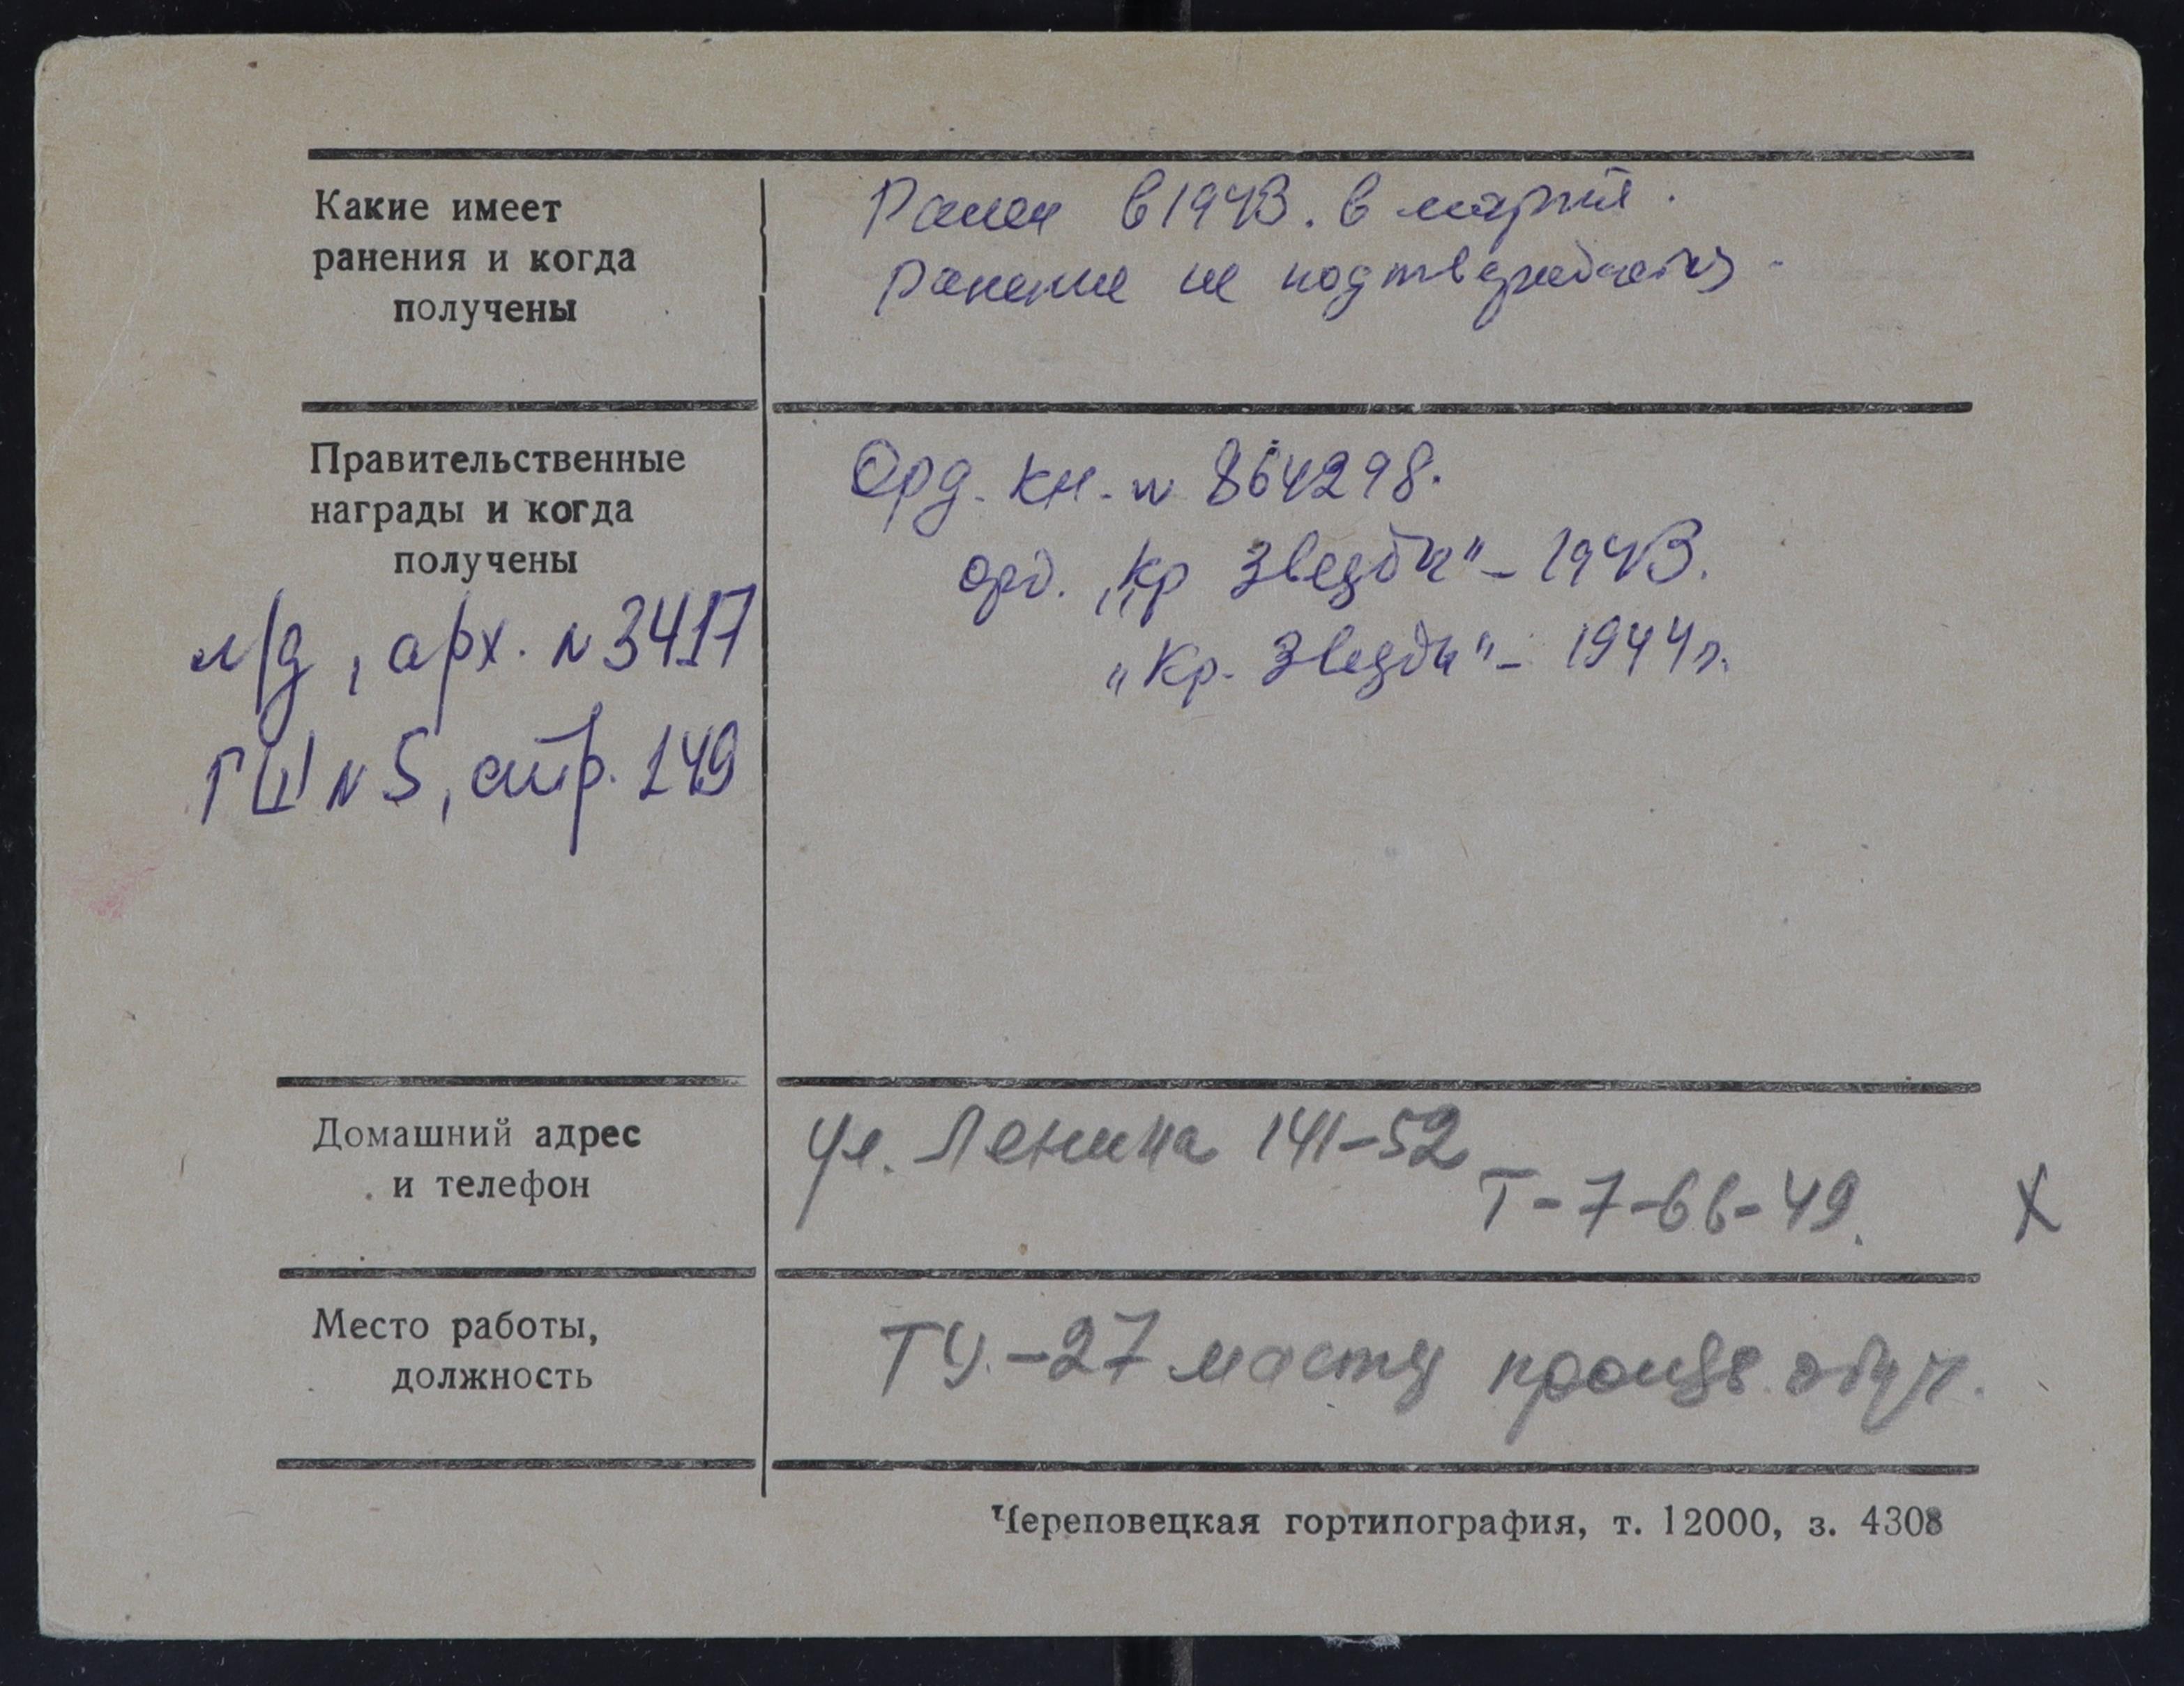 Какие имеет
ранения и когда
получены
Ранен в 1943. в марте.
Ранение не подтверждается.
Правительственные
награды и когда
получены
л/д, арх. N 3417
ГШ N 5, стр. 149
Орд. кн. N 864298.
орд. „Кр Звезды" - 1943.
„Кр. Звезды" - 1944 г.
Домашний адрес
и телефон
ул. Ленина 141-52
Т-7-66-49.
X
Место работы,
должность
ТУ.-27 мастер произв. обуч.
Череповецкая гортипография, т. 12000, з. 4308